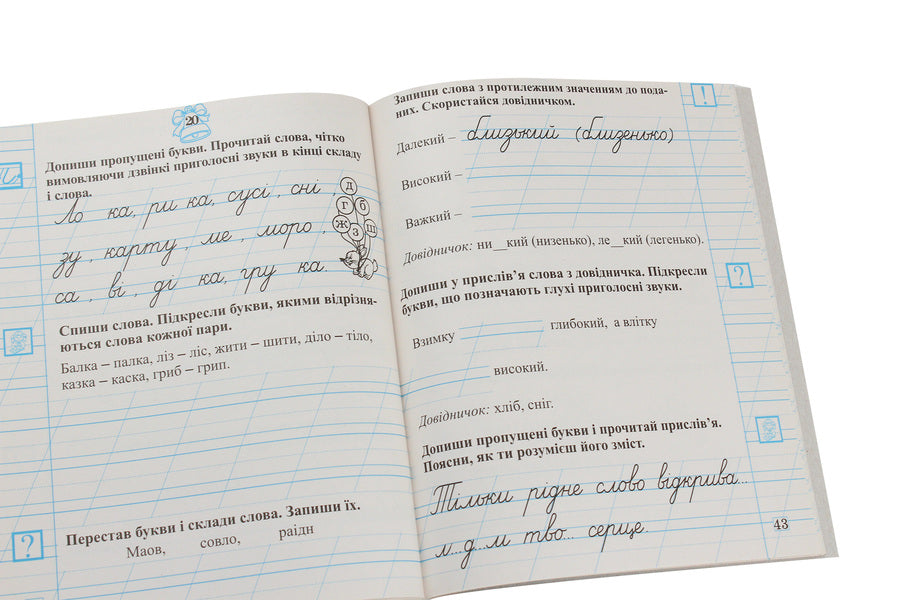 20
Допиши пропущені букви. Прочитай слова, чітко
вимовляючи дзвінкі приголосні звуки в кінці складу
і слова.
Ло ка, ри ка, сусі , сні ,
зу , карту , ме , моро ,
са , ві , ді ка, гру ка.
д
г б
ж з ш
Спиши слова. Підкресли букви, якими відрізня-
ються слова кожної пари.
Балка – палка, ліз – ліс, жити – шити, діло – тіло,
казка – каска, гриб – грип.
?
Перестав букви і склади слова. Запиши їх.
Маов, совло, раідн
Запиши слова з протилежним значенням до пода-
них. Скористайся довідничком.
!
Далекий – близький (близенько)
Високий –
Важкий –
Довідничок: ни__кий (низенько), ле__кий (легенько).
Допиши у прислів’я слова з довідничка. Підкресли
букви, що позначають глухі приголосні звуки.
?
Взимку глибокий, а влітку
високий.
Довідничок: хліб, сніг.
Допиши пропущені букви і прочитай прислів’я.
Поясни, як ти розумієш його зміст.
Тільки рідне слово відкрива...
л...д...м тво... серце.
43